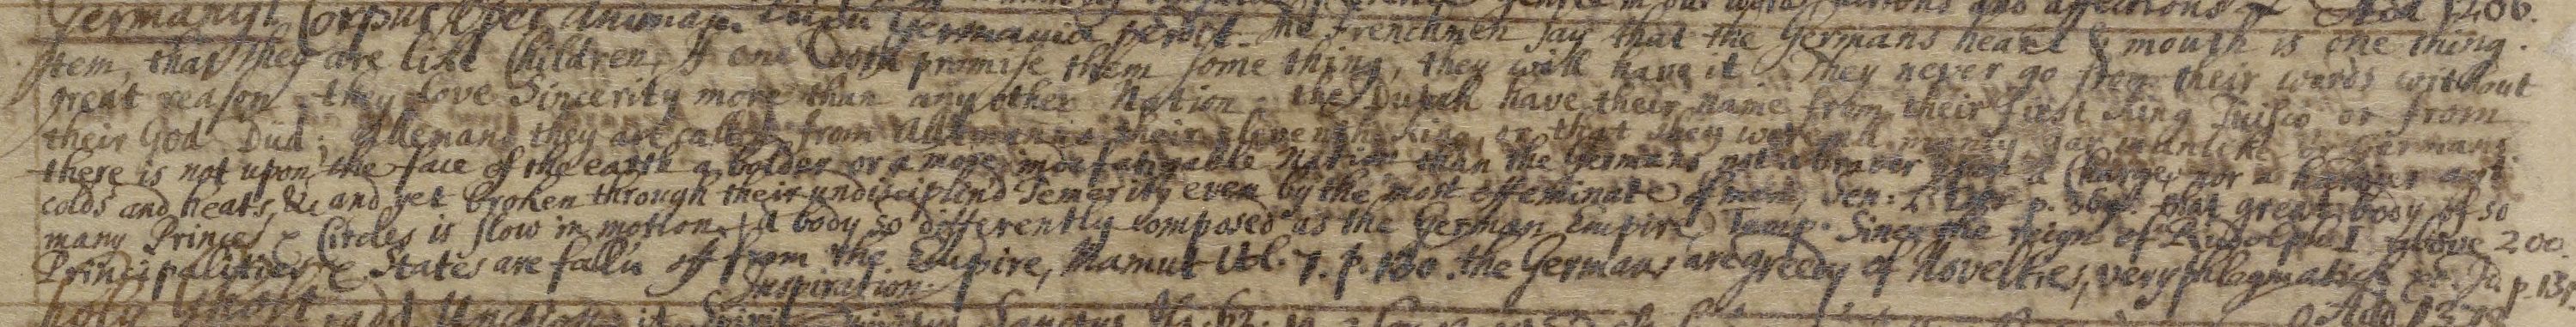 Germany. Corpus sine anima. Germania perdit. The Frenchmen say that the Germans heart & mouth is one thing.
Item, that they are like Children, If one doth promise them some thing, they will have it. They never go from their words without
great reason. they love Sincerity more than any other Nation. the Dutch have their name from their first King Tuisco or from
their God Dud; Allemans they are called from Allemanus their eleventh King, or that they were all manly
there is not upon the face of the earth a bolder or a more indefatigable Nation than the Germans not a braver upon a Charge, nor a hardier agt
colds and heats, &c and yet broken through their undisciplin'd Temerity even by the most effeminate of men, Sen: that great body of so
many Princes & Circles is slow in motion. A body so differently composed as the German Empire Temp. Since the reign of Rudolph I above 200
Principalities & States are fall'n off from the Empire, Mamut Vol. 7. p. 130. the Germans are greedy of Novelties, very phlegmatick &c. Id. p. 130
Inspiration.
holy Ghost add Unction it Spirit